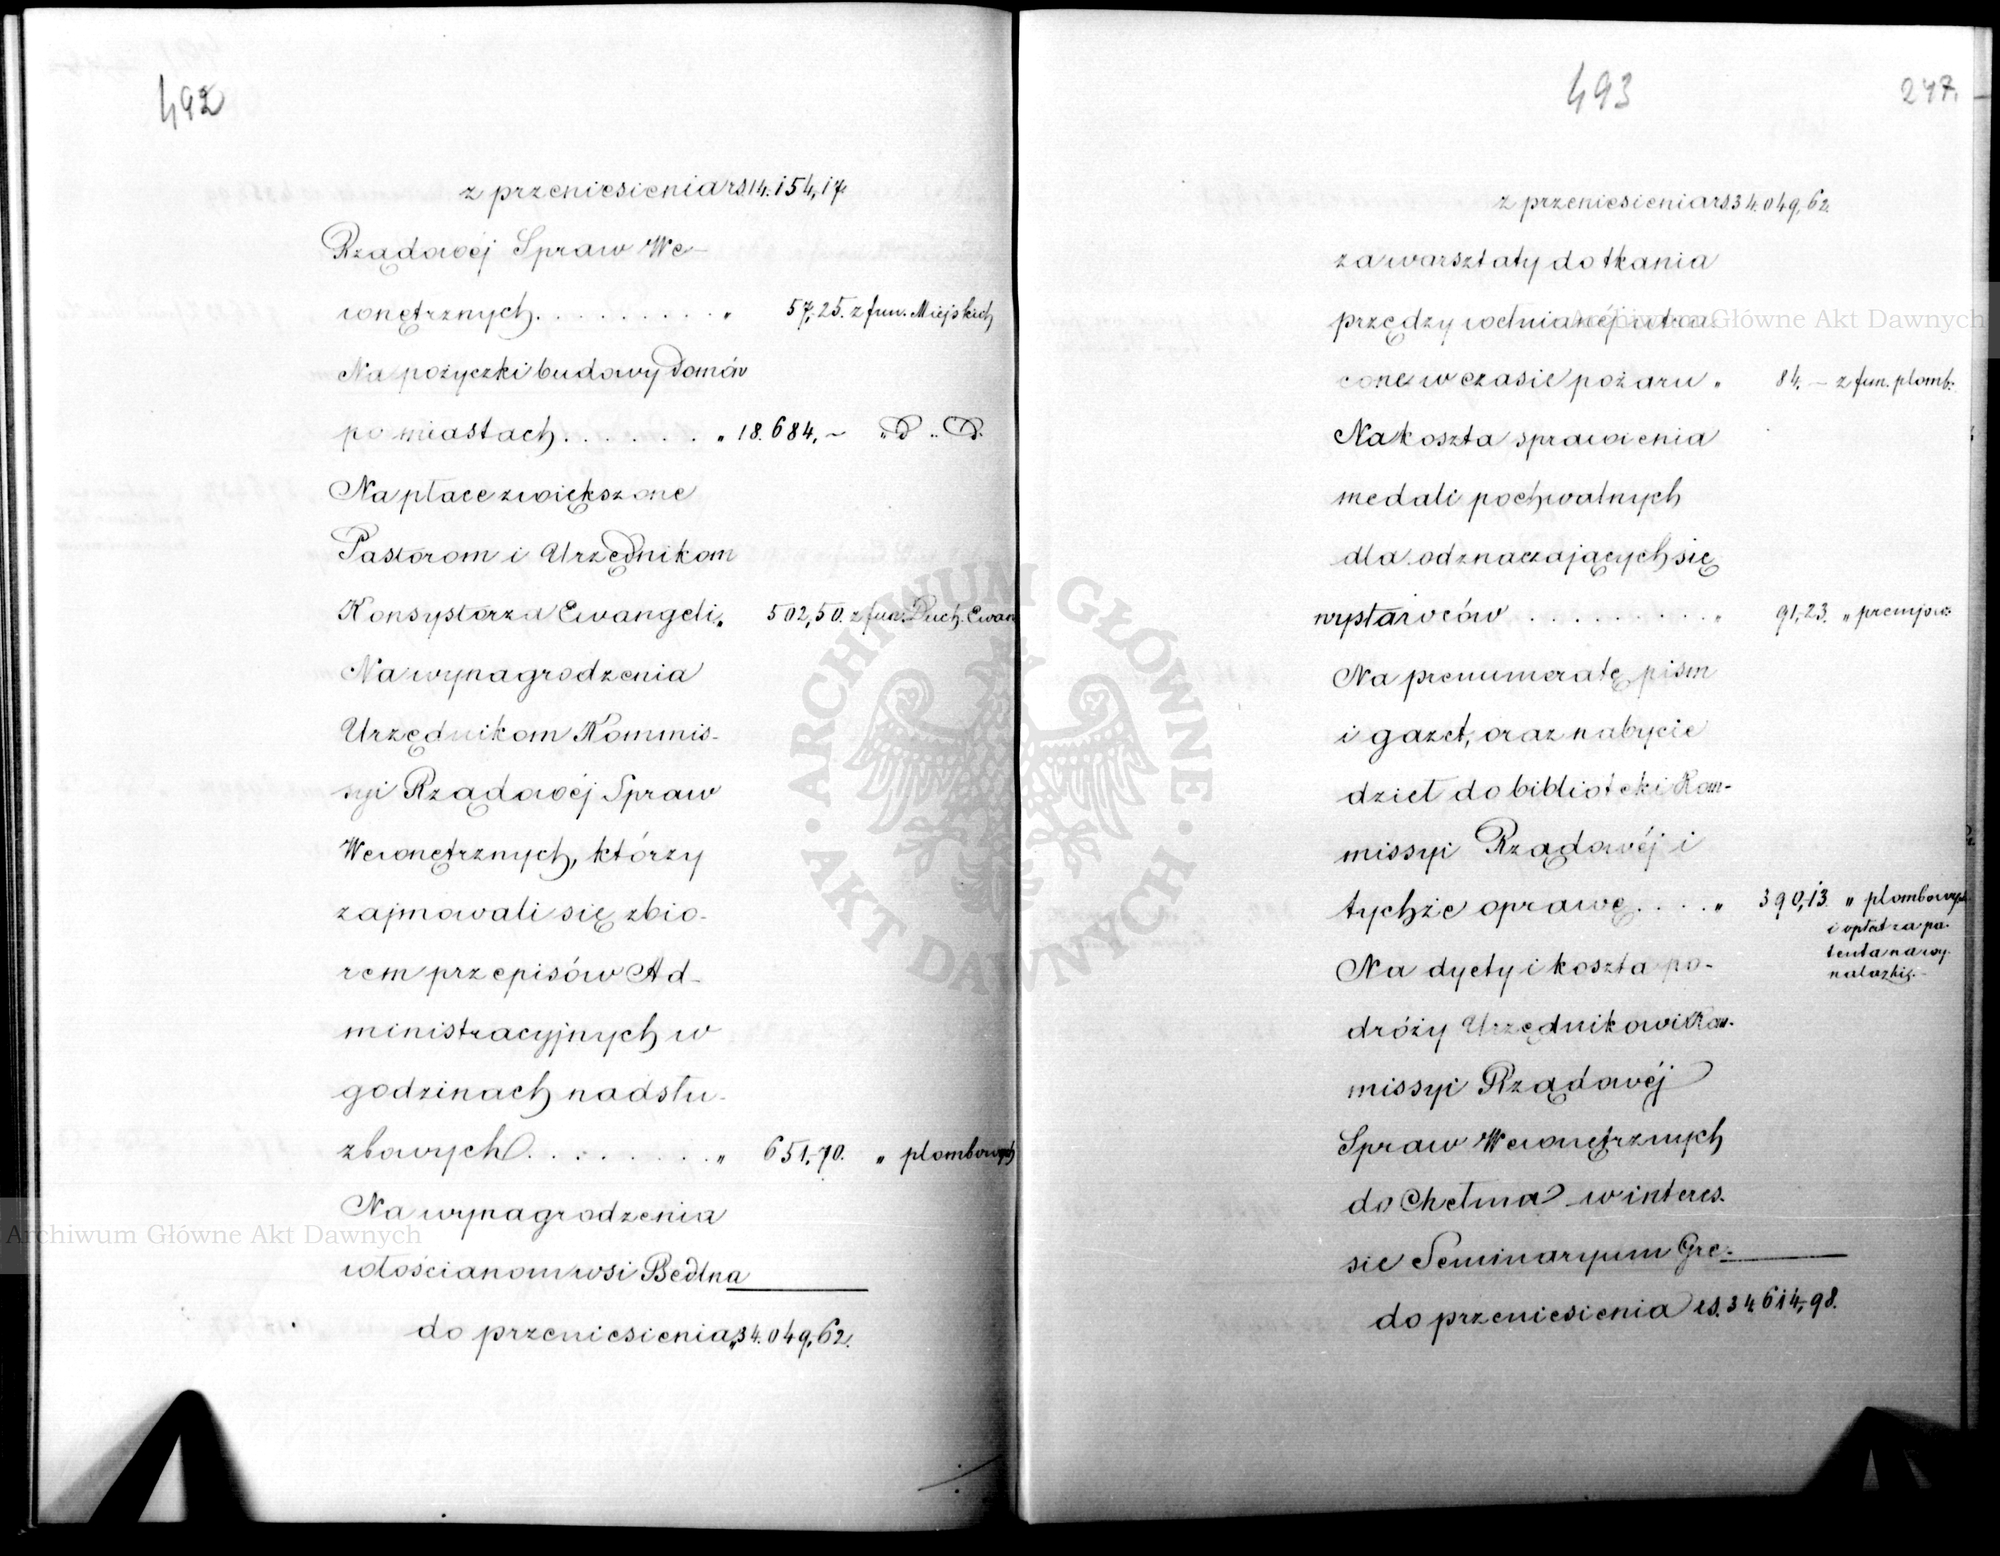 492
z przeniesienia rs 14.154,17.
Rządowéj Spraw We-
wnętrznych. . . . . . . . . . „ 57,25. z fun. Miejskich
Na pożyczki budowy domów
po miastach. . . . . . . . „ 18.684,– „ D „ D.
Na płace zwiększone
Pastorom i Urzędnikom
Konsystorza Ewangeli „ 502,50. z fun. Duch. Ewan
Na wynagrodzenia
Urzędnikom Kommis-
syi Rządowéj Spraw
Wewnętrznych, którzy
zajmowali się zbio-
rem przepisów Ad-
ministracyjnych w
godzinach nadsłu-
zbowych . . . . . . . . . „ 651,70. „ plombowych
Na wynagrodzenia
włościanom wsi Bedlna
do przeniesienia „ 34.049,62.
493
247.
z przeniesienia rs. 34.049,62.
za warsztaty do tkania
przędzy wełnianéj utra-
cone w czasie pożaru „ 84.– z fun. plomb:
Na koszta sprawienia
medali pochwalnych
dla odznaczających się
wystawców . . . . . . . . . . „ 91,23. „ premjow:
Na prenumeratę pism
i gazet, oraz nabycie
dzieł do biblioteki Kom-
missyi Rządowéj i
tychże oprawę. . . . „ 390,13. „ plombowych
i opłat za pa-
tenta na wy-
nalazki.–
Na dyety i koszta po-
dróży Urzędnikowi Kom-
missyi Rządowéj
Spraw Wewnętrznych
do Chełma w interes-
sie Seminaryum Gre-
do przeniesienia rs. 34.614,98.
Archiwum Główne Akt Dawnych
Archiwum Główne Akt Dawnych
· ARCHIWUM GŁÓWNE · AKT DAWNYCH